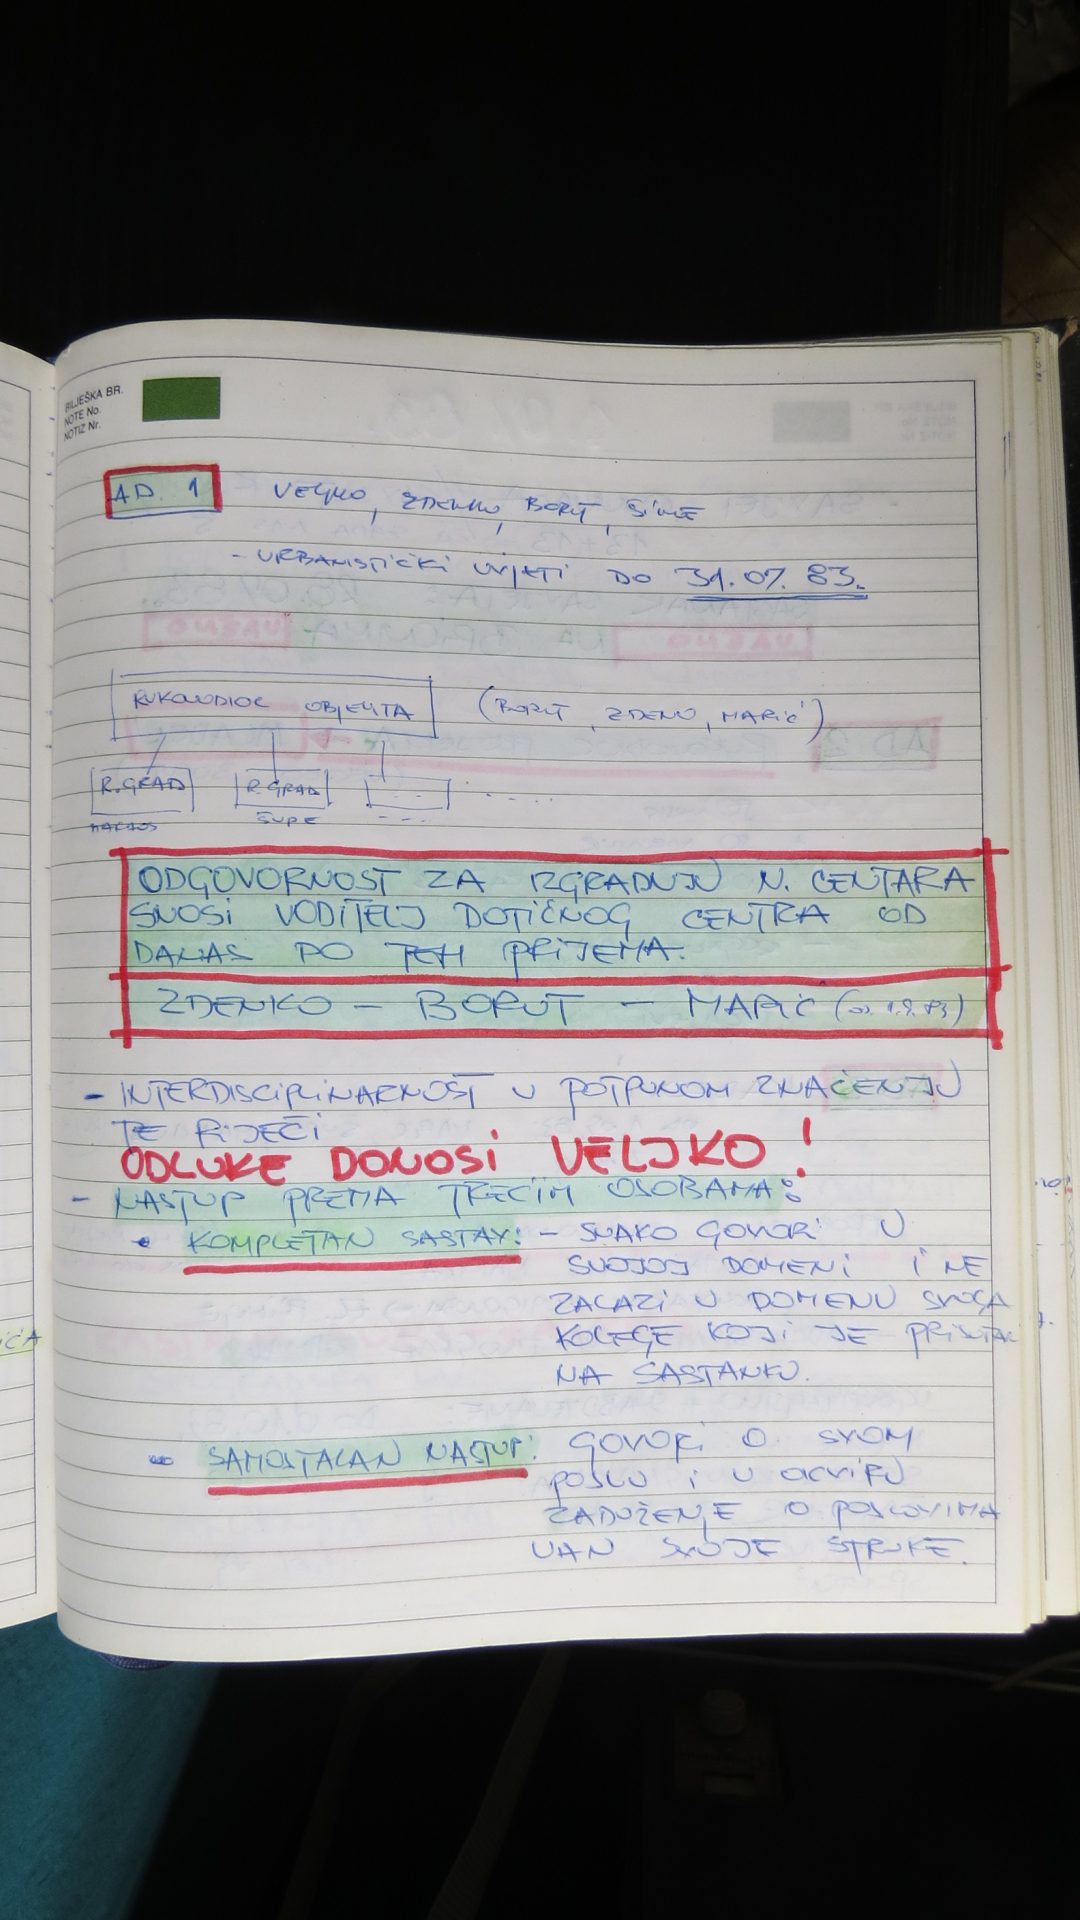 BILJEŠKA BR.
NOTE No.
NOTIZ Nr.
AD. 1 VELJKO, ZDENKO, BORUT, ŠIME
- URBANISTIČKI UVJETI DO 31.07.83.
RUKOVODIOC OBJEKTA (BORUT, ZDENKO, MARIĆ)
R.GRAD R.GRAD - - - . . . . .
ŠUPE - - -
ODGOVORNOST ZA IZGRADNJU N. CENTARA
SNOSI VODITELJ DOTIČNOG CENTRA OD
DANAS DO TEH PRIJEMA.
ZDENKO - BORUT - MARIĆ (OD 1.9.83)
- INTERDISCIPLINARNOST U POTPUNOM ZNAČENJU
TE RIJEČI
ODLUKE DONOSI VELJKO!
- NASTUP PREMA TREĆIM OSOBAMA:
• KOMPLETAN SASTAV: - SVAKO GOVORI U
SVOJOJ DOMENI I NE
ZALAZI U DOMENU SVOGA
KOLEGE KOJI JE PRISUTAN
NA SASTANKU.
• SAMOSTALAN NASTUP: GOVORI O SVOM
POSLU I U OKVIRU
ZADUŽENJE O POSLOVIMA
VAN SVOJE STRUKE.